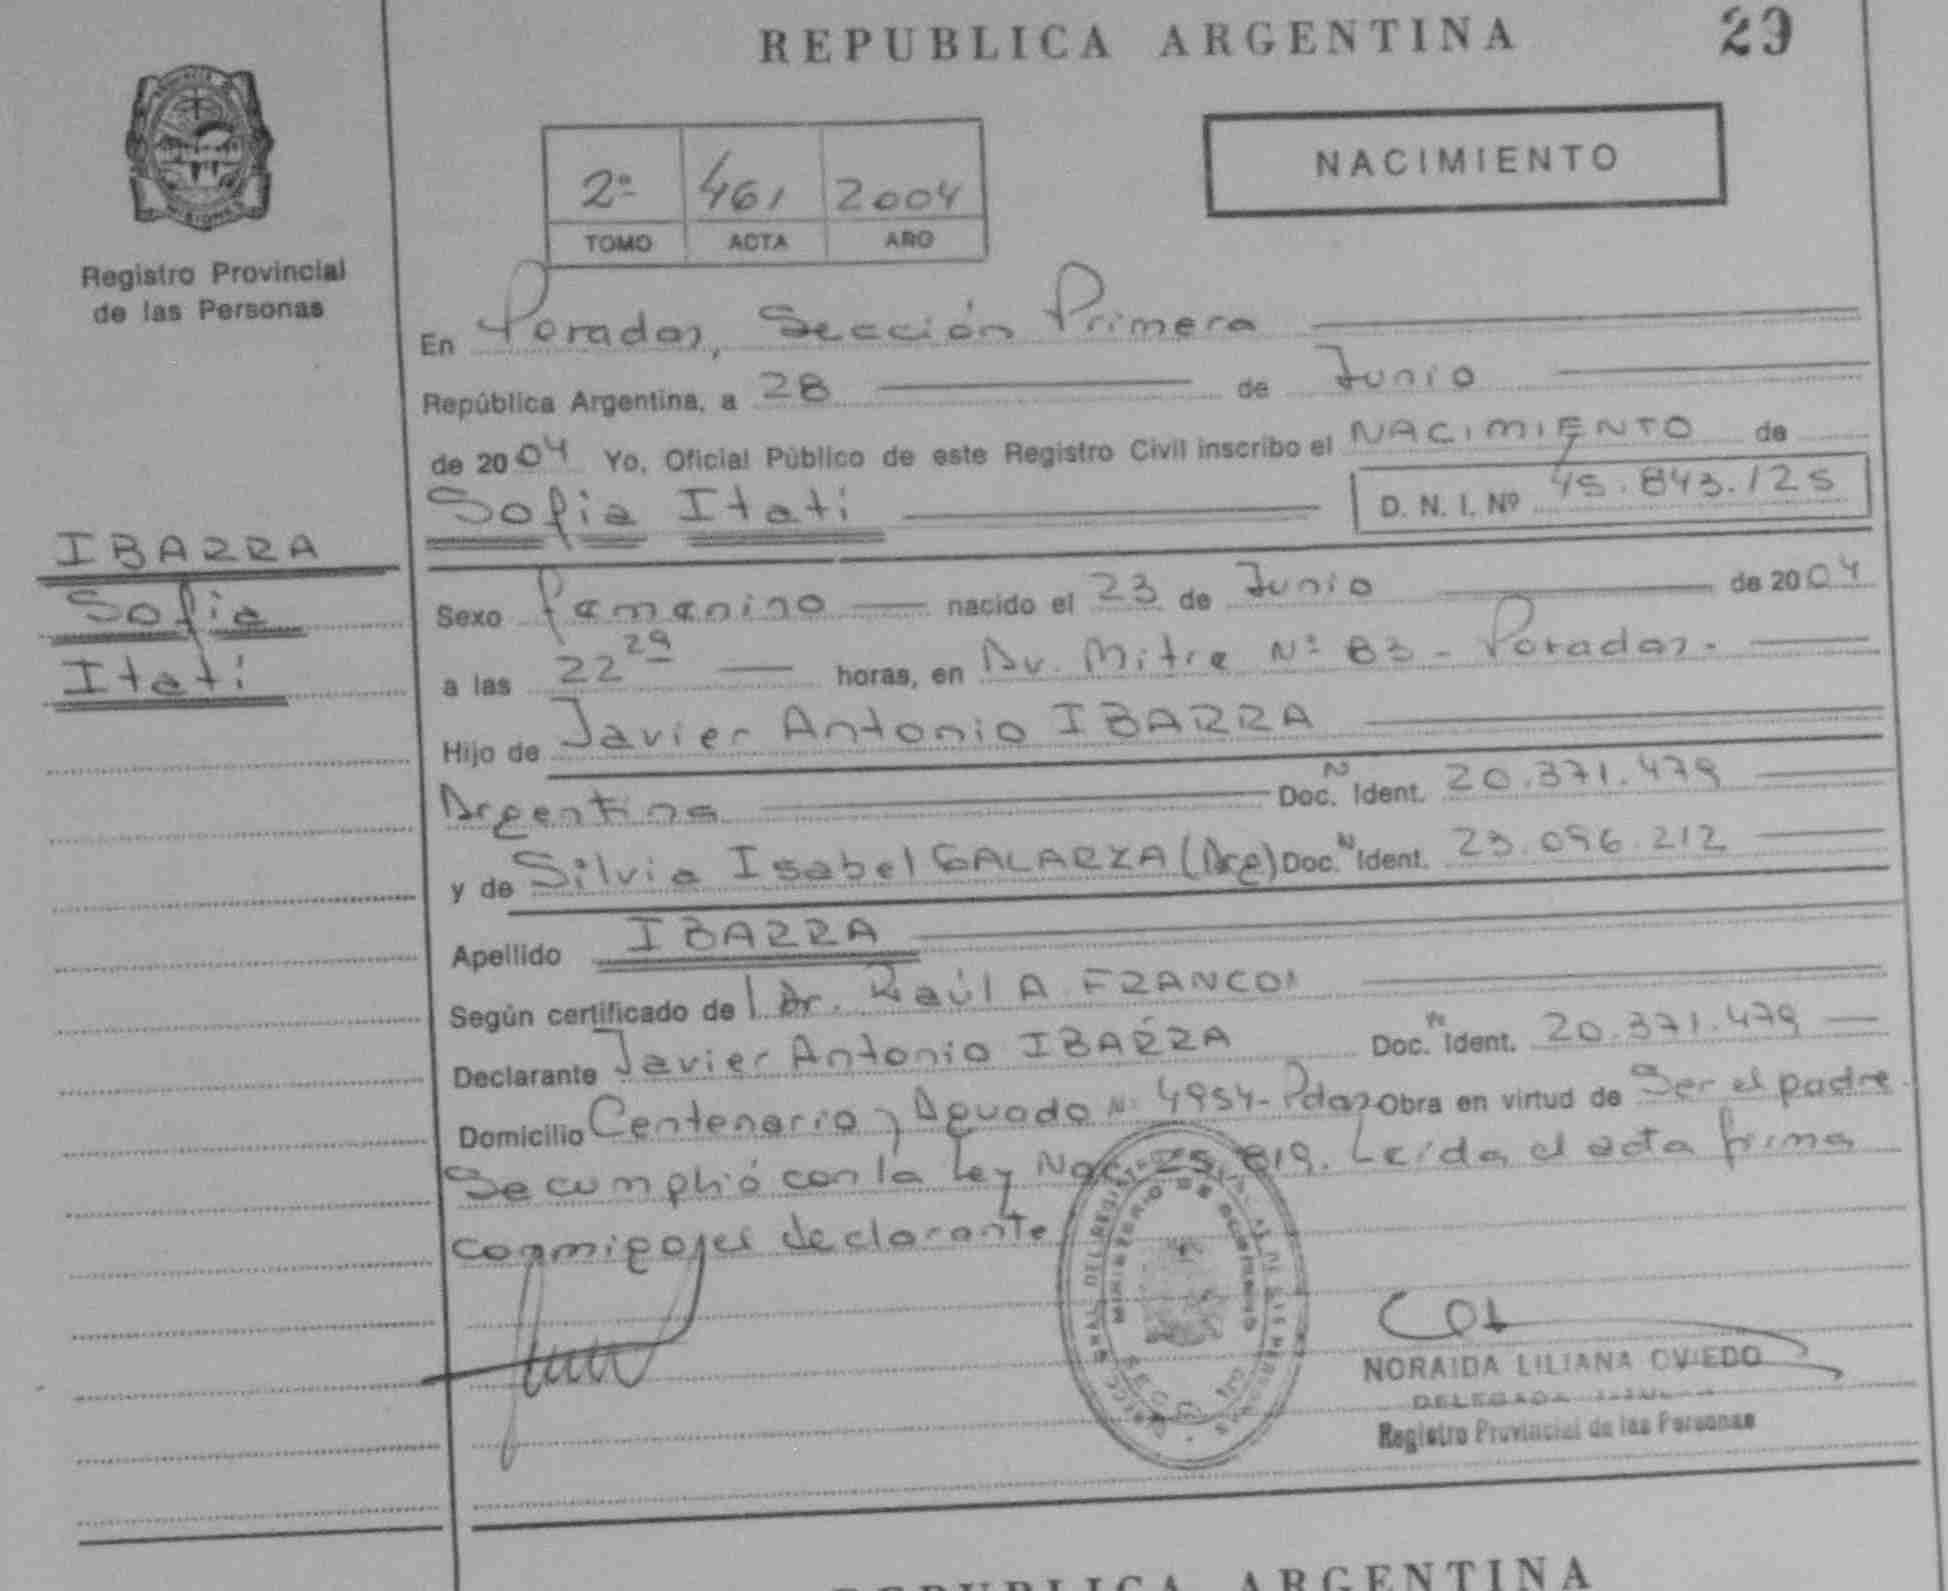 REPUBLICA ARGENTINA
29
Registro Provincial
de las Personas
2º 461 2004
TOMO ACTA AÑO
NACIMIENTO
En Posadas, Sección Primera
República Argentina, a 28 de Junio
de 2004 Yo, Oficial Público de este Registro Civil inscribo el NACIMIENTO de
Sofia Itatí D. N. I. Nº 45.843.125
IBARRA
Sofia
Itatí
Sexo femenino nacido el 23 de Junio de 2004
a las 22 29 horas, en Av. Mitre Nº 83 - Posadas.
Hijo de Javier Antonio IBARRA
Argentina Doc. N Ident. 20.371.479
y de Silvia Isabel GALARZA (Arg) Doc. N Ident. 23.096.212
Apellido IBARRA
Según certificado de Dr. Raúl A. FRANCO
Declarante Javier Antonio IBARRA Doc. Nº Ident. 20.371.479
Domicilio Centenario y Aguado Nº 4954 - Pdas Obra en virtud de Ser el padre.
Se cumplió con la Ley Nac. 25.819. Leída el acta firma
conmigo el declarante
MINISTERIO DE GOBIERNO
NORAIDA LILIANA OVIEDO
DELEGADA
Registro Provincial de las Personas
REPUBLICA ARGENTINA